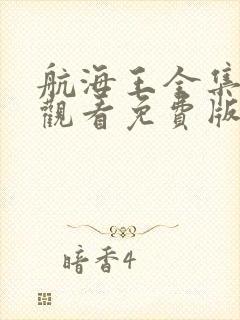 航海王全集
觀看免費版
暗香4